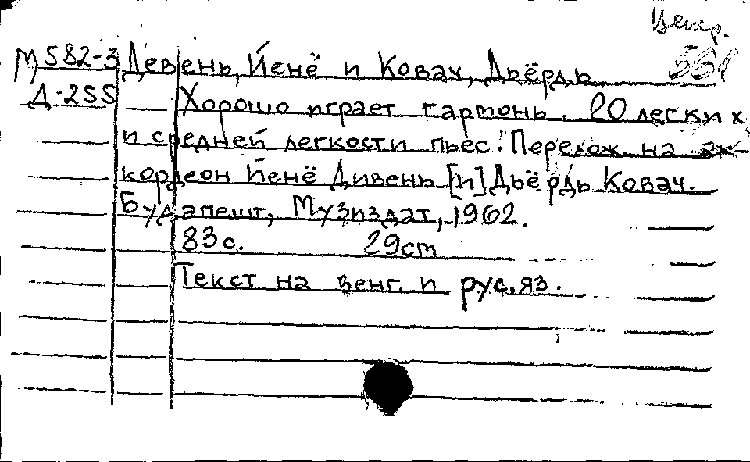 Венг.
М 582-3 Девень, Йенё и Ковач, Дьёрдь
Д-255 Хорошо играет гармонь. 20 легких
и средней легкости пьес. Перелож. на ак-
кордеон Йенё Дивень [и] Дьёрдь Ковач.
Будапешт, Музиздат, 1962.
83 с. 29 cm
Текст на венг. и рус. яз.